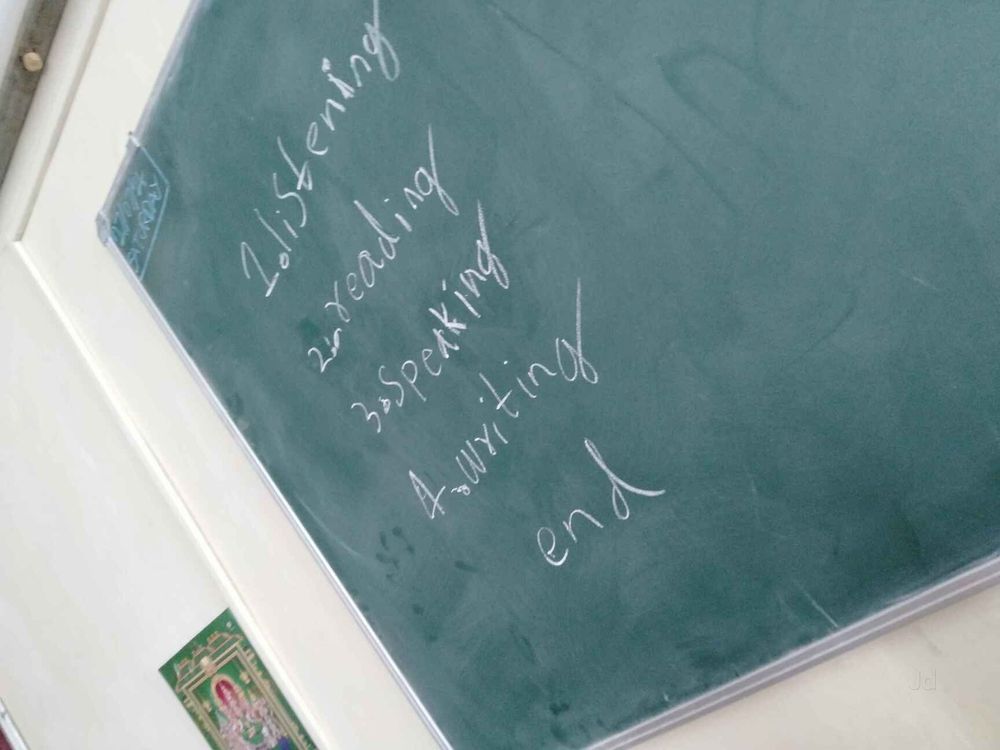 1. listening
2. reading
3. Speaking
4. writing
end
Jd